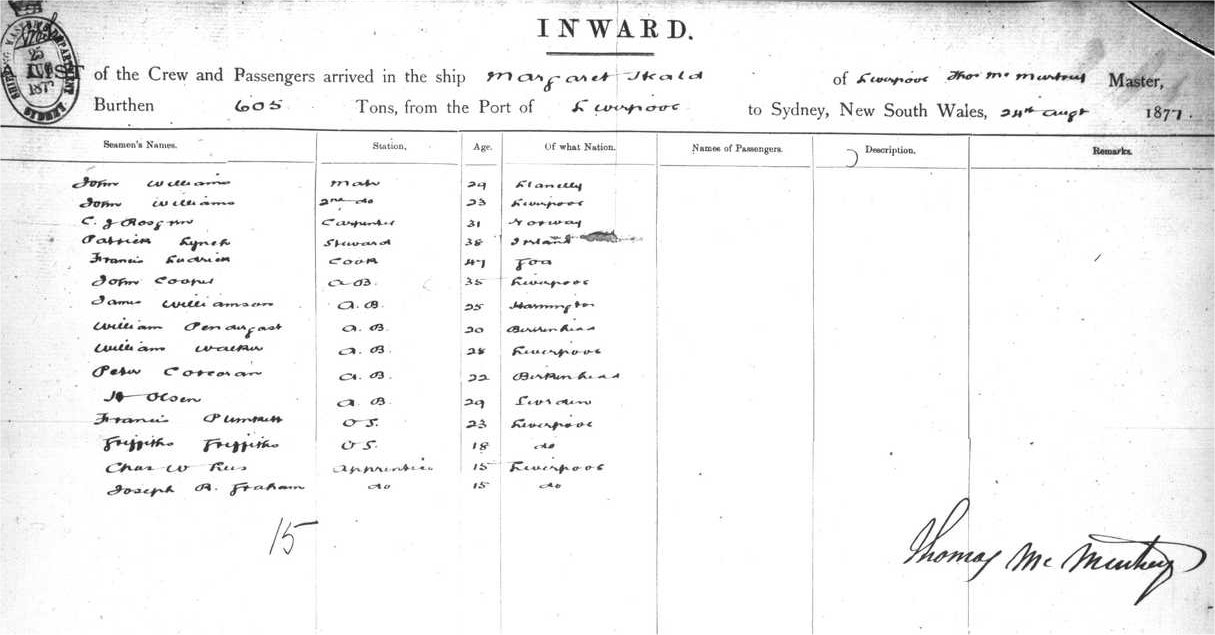 INWARD.
LIST of the Crew and Passengers arrived in the ship Margaret Skald of Liverpool Thos McMurtrey Master,
Burthen 605 Tons, from the Port of Liverpool to Sydney, New South Wales, 24th Augt 1877.
Seamen's Names. Station. Age. Of what Nation. Names of Passengers. Description. Remarks.
John Williams Mate 29 Llanelly
John Williams 2nd do 23 Liverpool
C. J. Carpenter 31 Norway
Patrick Lynch Steward 38 Ireland
Francis Cook 47 Goa
John Cooper A.B. 35 Liverpool
James Williamson A.B. 25 Harrington
William Pendergast A.B. 20 Birkenhead
William Walker A.B. 28 Liverpool
Peter Corcoran A.B. 22 Birkenhead
Olsen A.B. 29 Sweden
Francis Plunkett O.S. 23 Liverpool
Griffiths Griffiths O.S. 18 do
Chas W Apprentice 15 Liverpool
Joseph R. Graham do 15 do
15
Thomas McMurtrey